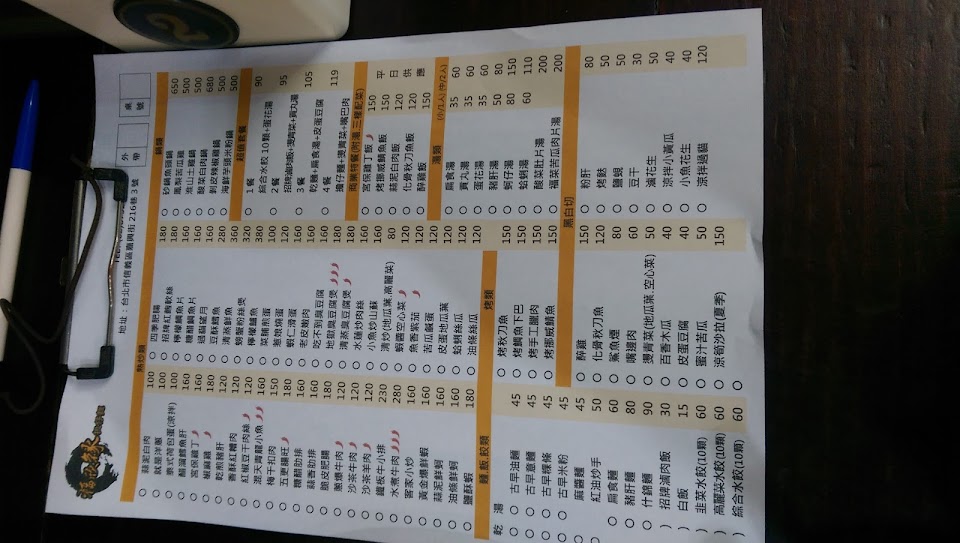 福 來
地址：台北市信義區嘉興街 216巷 3 號
外帶
桌號
熱炒類
○ 蒜泥白肉 100
○ 就是洋蔥 100
○ 泰式荷包蛋(涼拌) 100
○ 醋溜鱈魚肝 160
○ 宮保雞丁 160
○ 椒麻雞 180
○ 乾煎豬肝 120
○ 香酥紅糟肉 120
○ 紅椒豆干肉絲 120
○ 混天青龍小魚 160
○ 梅干扣肉 150
○ 五更腸旺 180
○ 糖醋肋排 160
○ 蒜香肋排 160
○ 脆皮肥腸 180
○ 蔥爆牛肉 120
○ 沙茶牛肉 120
○ 沙茶羊肉 120
○ 鐵板牛小排 230
○ 水煮牛肉 280
○ 客家小炒 160
○ 黃金爆鮮蝦 160
○ 蒜泥鮮蚵 160
○ 油條鮮蚵 160
○ 鹽酥蝦 180
麵 飯 餃類
乾 湯
○ ○ 古早油麵 45
○ ○ 古早意麵 45
○ ○ 古早粿條 45
○ ○ 古早米粉 45
○ 麻醬麵 45
○ 紅油炒手 50
○ 扁食麵 60
○ 豬肝麵 80
○ 什錦麵 90
○ 招牌滷肉飯 30
○ 白飯 15
○ 韭菜水餃(10顆) 60
○ 高麗菜水餃(10顆) 60
○ 綜合水餃(10顆) 60
○ 四季肥腸 180
○ 招牌紅麴軟絲 180
○ 檸檬鯛魚片 160
○ 糖醋鯛魚片 160
○ 過貓望月 160
○ 豆酥鱈魚 280
○ 清蒸鮮魚 360
○ 螃蟹粉絲煲 320
○ 檸檬鱸魚 380
○ 菜脯煎蛋 100
○ 蔥燒蛋 120
○ 蝦仁滑蛋 160
○ 老皮嫩肉 160
○ 吃不到臭豆腐 160
○ 地獄臭豆腐煲 180
○ 清蒸臭豆腐煲 180
○ 水蓮炒肉絲 160
○ 小魚炒山蘇 160
○ 清炒(地瓜葉.高麗菜) 80
○ 蝦醬空心菜 120
○ 魚香紫茄 120
○ 苦瓜鹹蛋 120
○ 皮蛋地瓜葉 120
○ 蛤蜊絲瓜 120
○ 油條絲瓜 120
烤類
○ 烤秋刀魚 150
○ 烤鯛魚下巴 150
○ 烤手工臘肉 150
○ 烤挪威鯖魚 150
黑白切
○ 醉雞 150
○ 化骨秋刀魚 120
○ 鯊魚煙 80
○ 嘴邊肉 60
○ 燙青菜(地瓜葉.空心菜) 50
○ 百香木瓜 40
○ 皮蛋豆腐 40
○ 蜜汁苦瓜 50
○ 涼筍沙拉(夏季) 150
鍋類
○ 砂鍋魚頭鍋 650
○ 鳳梨苦瓜雞 500
○ 淮山土雞鍋 500
○ 酸菜白肉鍋 500
○ 剝皮辣椒雞鍋 680
○ 海鮮芋頭米粉鍋 500
超值套餐
○ 1餐
綜合水餃 10顆+蛋花湯 90
○ 2餐
招牌滷肉飯+燙青菜+貢丸湯 95
○ 3餐
乾麵+扁食湯+皮蛋豆腐 105
○ 4餐
擔仔麵+燙青菜+嘴巴肉 119
商業特餐(附湯.三樣配菜)
○ 宮保雞丁飯 150
○ 烤挪威鯖魚飯 150
○ 蒜泥白肉飯 120
○ 化骨秋刀魚飯 120
○ 醉雞飯 150
平日供應
湯類 (小/1人) (中/2人)
○ 扁食湯 35 60
○ 貢丸湯 35 60
○ 蛋花湯 35 60
○ 豬肝湯 50 80
○ 蚵仔湯 80 150
○ 蛤蜊湯 60 110
○ 酸菜肚片湯 200
○ 福菜苦瓜肉片湯 200
○ 粉肝 80
○ 烤麩 50
○ 鹽蜆 50
○ 豆干 30
○ 滷花生 50
○ 涼拌小黃瓜 40
○ 小魚花生 40
○ 涼拌過貓 120